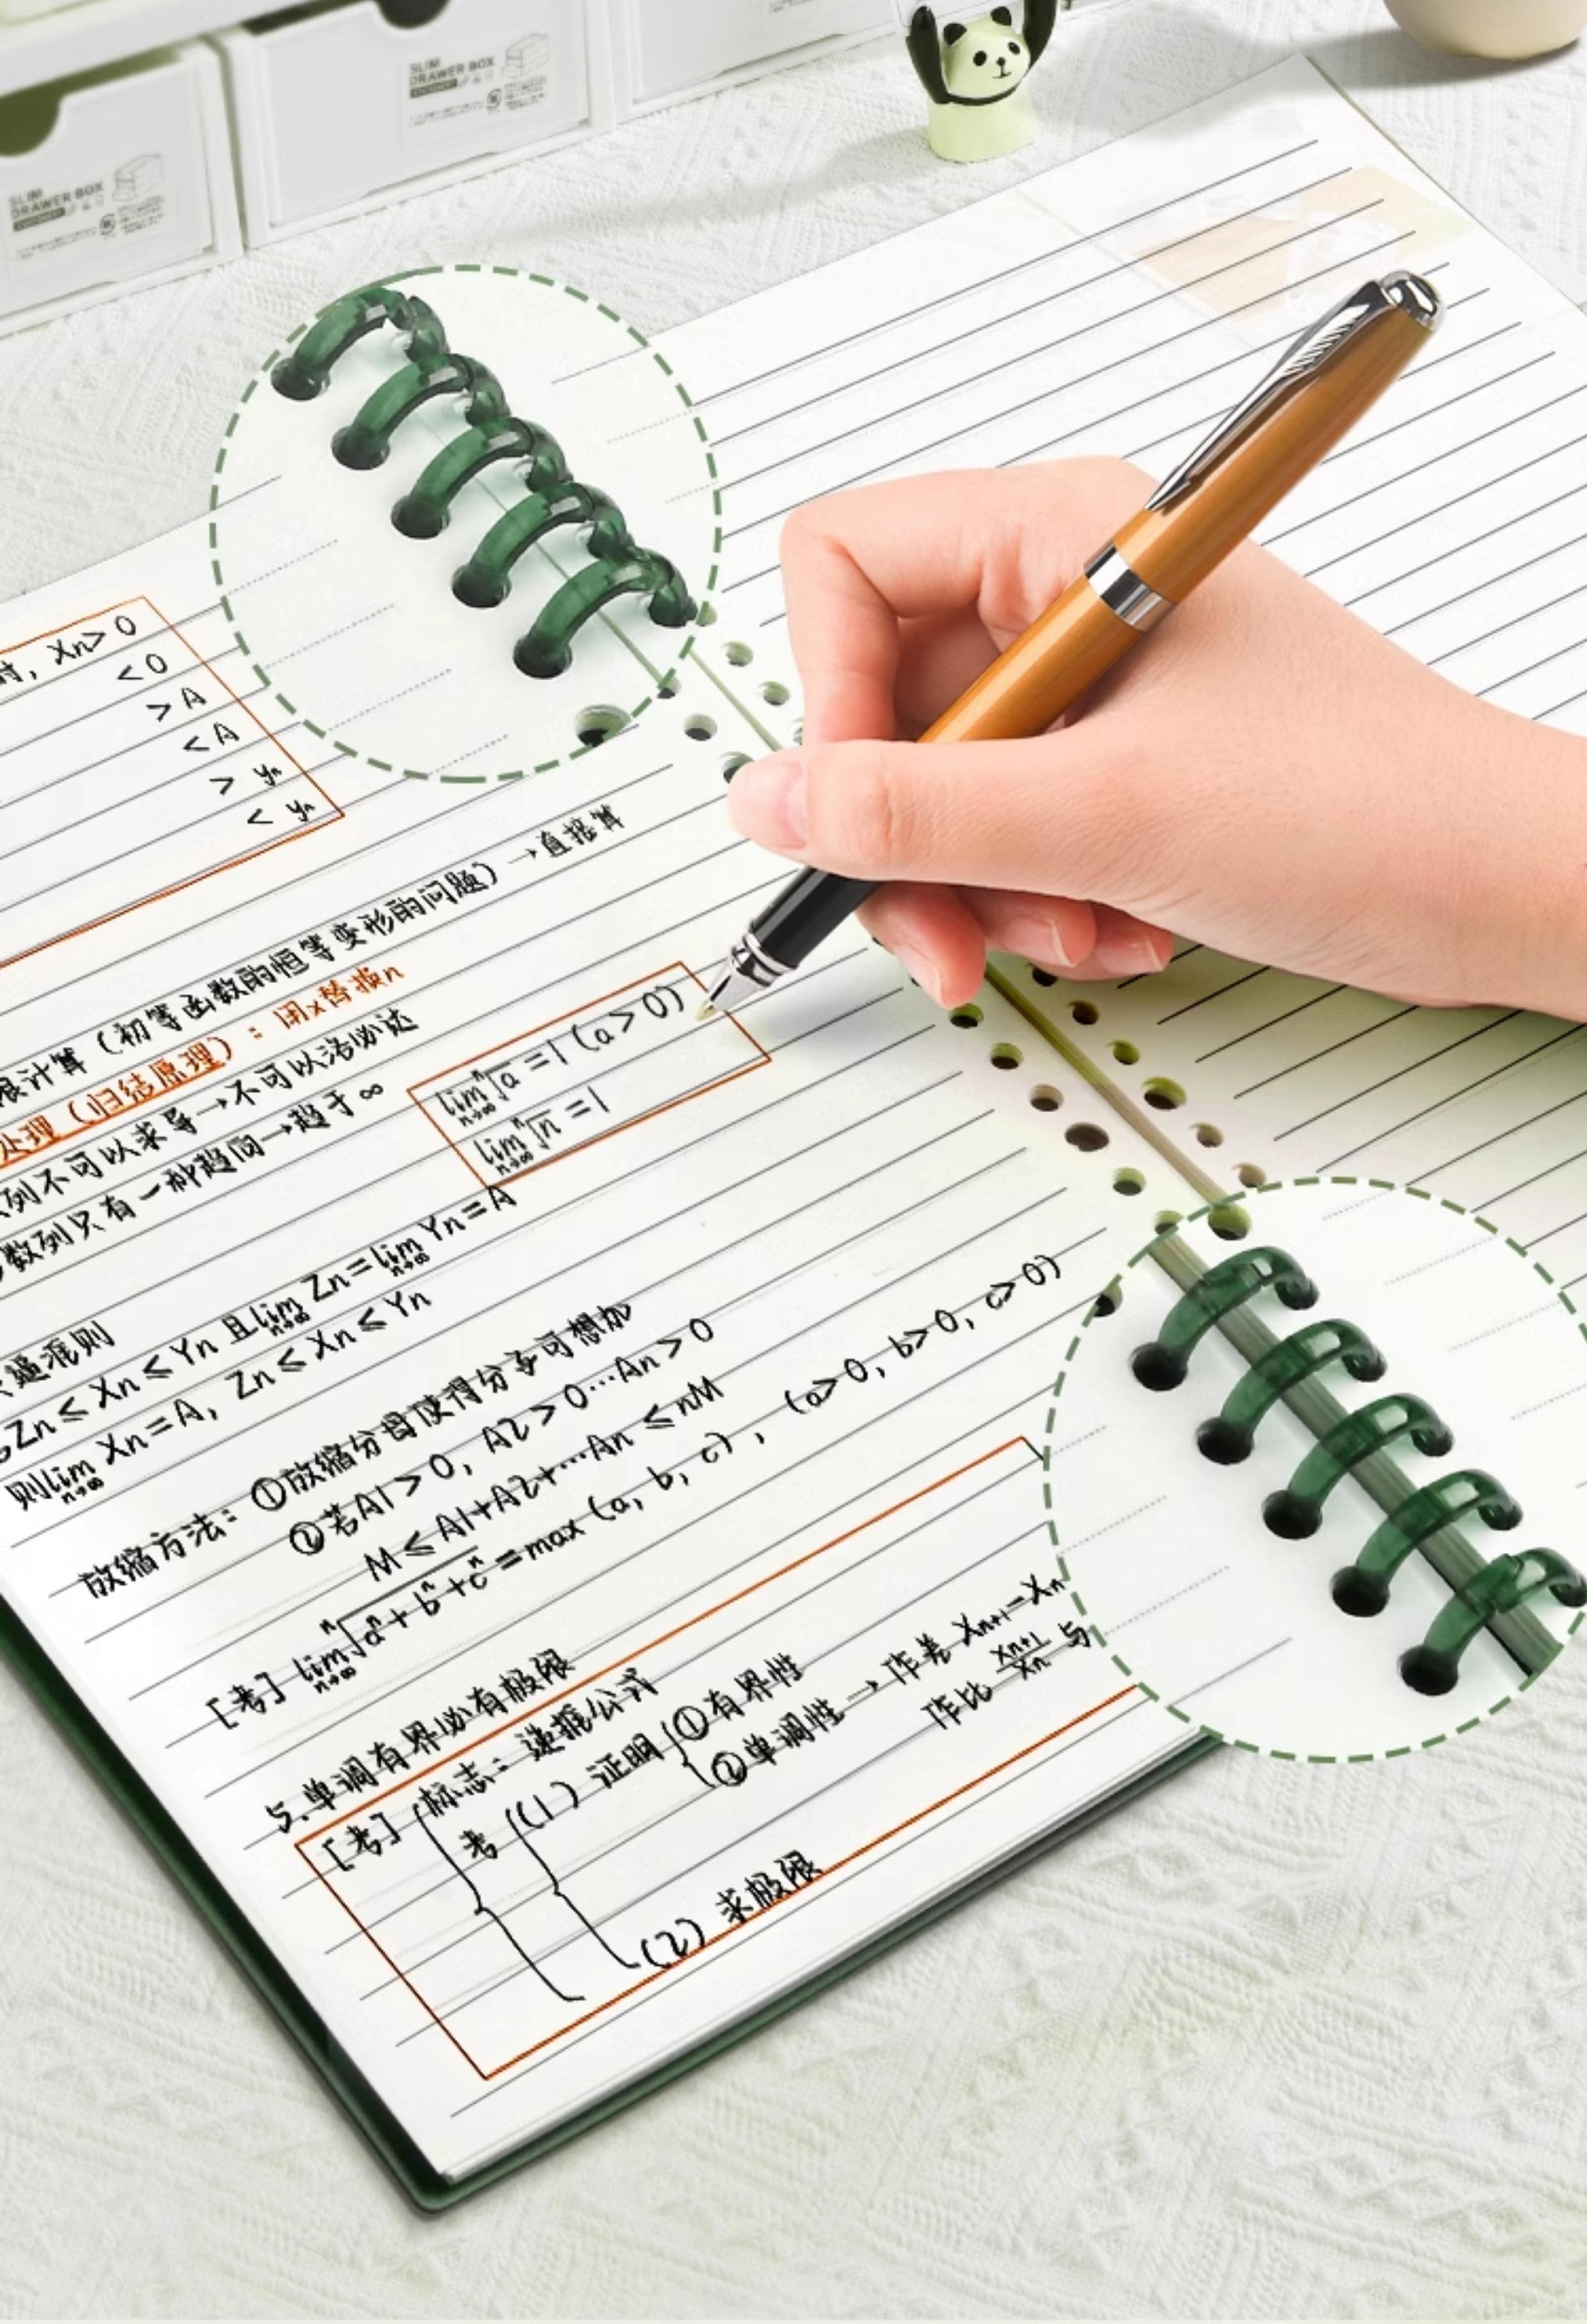 SLIM
DRAWER BOX
SLIM
DRAWER BOX
时, Xn>0
<0
>A
<A
> yn
< yn
限计算（初等函数的恒等变形的问题）→直接算
处理（归结原理）：用x替换n
列不可以求导→不可以洛必达
数列只有一种趋向→趋于∞
lim n→∞ ⁿ√a =1 (a>0)
lim n→∞ ⁿ√n =1
准则
Zn≤Xn≤Yn 且lim n→∞ Zn=lim n→∞ Yn=A
则lim n→∞ Xn=A, Zn≤Xn≤Yn
放缩方法：①放缩分母使得分子可想加
②若A1>0, A2>0…An>0
M≤A1+A2+…An≤nM
[考] lim n→∞ ⁿ√aⁿ+bⁿ+cⁿ =max (a, b, c), (a>0, b>0, c>0)
5.单调有界必有极限
[考] 标志：递推公式
考 (1) 证明 ①有界性
②单调性→作差 Xn+1-Xn
作比 Xn+1/Xn 与
(2) 求极限